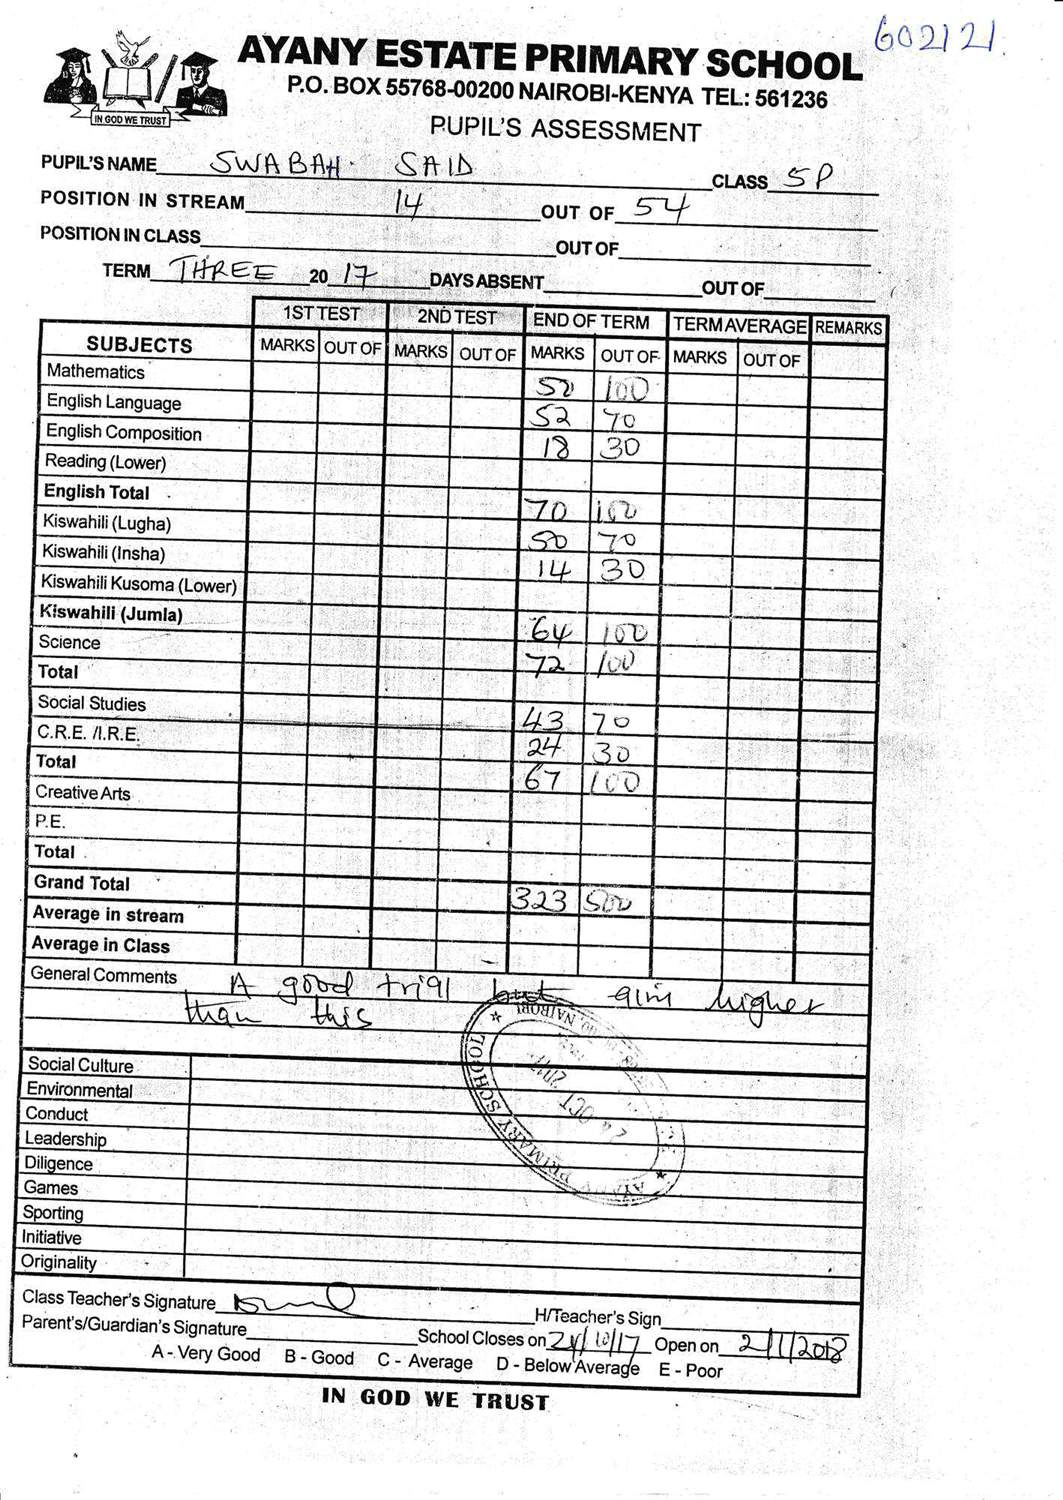 602121.
AYANY ESTATE PRIMARY SCHOOL
P.O. BOX 55768-00200 NAIROBI-KENYA TEL.: 561236
IN GOD WE TRUST
PUPIL'S ASSESSMENT
PUPIL'S NAME SWABAH SAID CLASS 5P
POSITION IN STREAM 14 OUT OF 54
POSITION IN CLASS OUT OF
TERM THREE 20 17 DAYS ABSENT OUT OF
1ST TEST 2ND TEST END OF TERM TERM AVERAGE REMARKS
SUBJECTS MARKS OUT OF MARKS OUT OF MARKS OUT OF MARKS OUT OF
Mathematics 50 100
English Language 52 70
English Composition 18 30
Reading (Lower)
English Total 70 100
Kiswahili (Lugha) 50 70
Kiswahili (Insha) 14 30
Kiswahili Kusoma (Lower)
Kiswahili (Jumla) 64 100
Science 72 100
Total
Social Studies 43 70
C.R.E. /I.R.E. 24 30
Total 67 100
Creative Arts
P.E.
Total
Grand Total 323 500
Average in stream
Average in Class
General Comments A good trial but aim higher
than this
Social Culture
Environmental
Conduct
Leadership
Diligence
Games
Sporting
Initiative
Originality
AYANY PRIMARY SCHOOL
NAIROBI
24 OCT 2017
Class Teacher's Signature H/Teacher's Sign
Parent's/Guardian's Signature School Closes on 24/10/17 Open on 2/1/2018
A - Very Good B - Good C - Average D - Below Average E - Poor
IN GOD WE TRUST